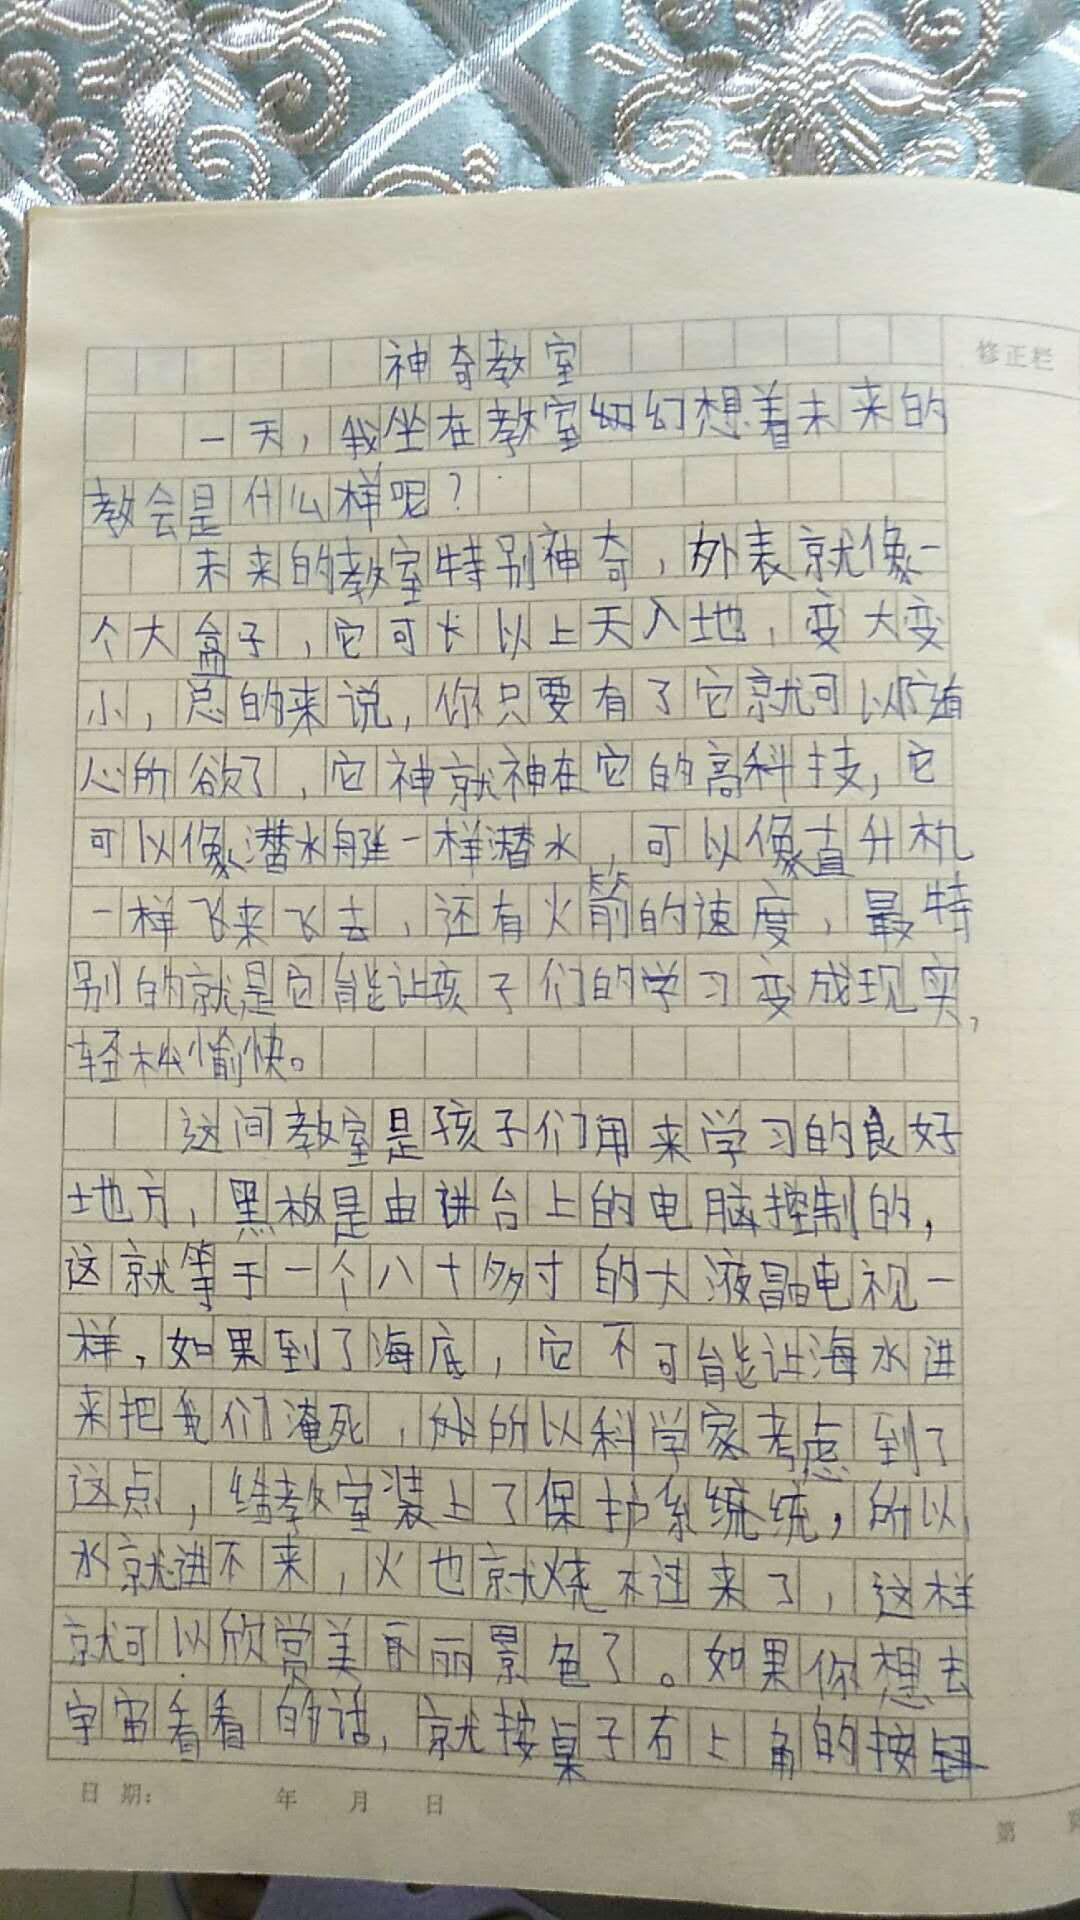 神奇教室
修正栏
一天，我坐在教室幻想着未来的
教会是什么样呢？
未来的教室特别神奇，外表就像一
个大盒子，它可长以上天入地，变大变
小，总的来说，你只要有了它就可以随
心所欲了，它神就神在它的高科技，它
可以像潜水艇一样潜水，可以像直升机
一样飞来飞去，还有火箭的速度，最特
别的就是它能让孩子们的学习变成现实，
轻松愉快。
这间教室是孩子们用来学习的良好
地方，黑板是由讲台上的电脑控制的，
这就等于一个八十多寸的大液晶电视一
样，如果到了海底，它不可能让海水进
来把我们淹死，所以科学家考虑到了
这点，给教室装上了保护系统统，所以
水就进不来，火也就烧不过来了，这样
就可以欣赏美丽景色了。如果你想去
宇宙看看的话，就按桌子右上角的按钮
日 期： 年 月 日
第 页